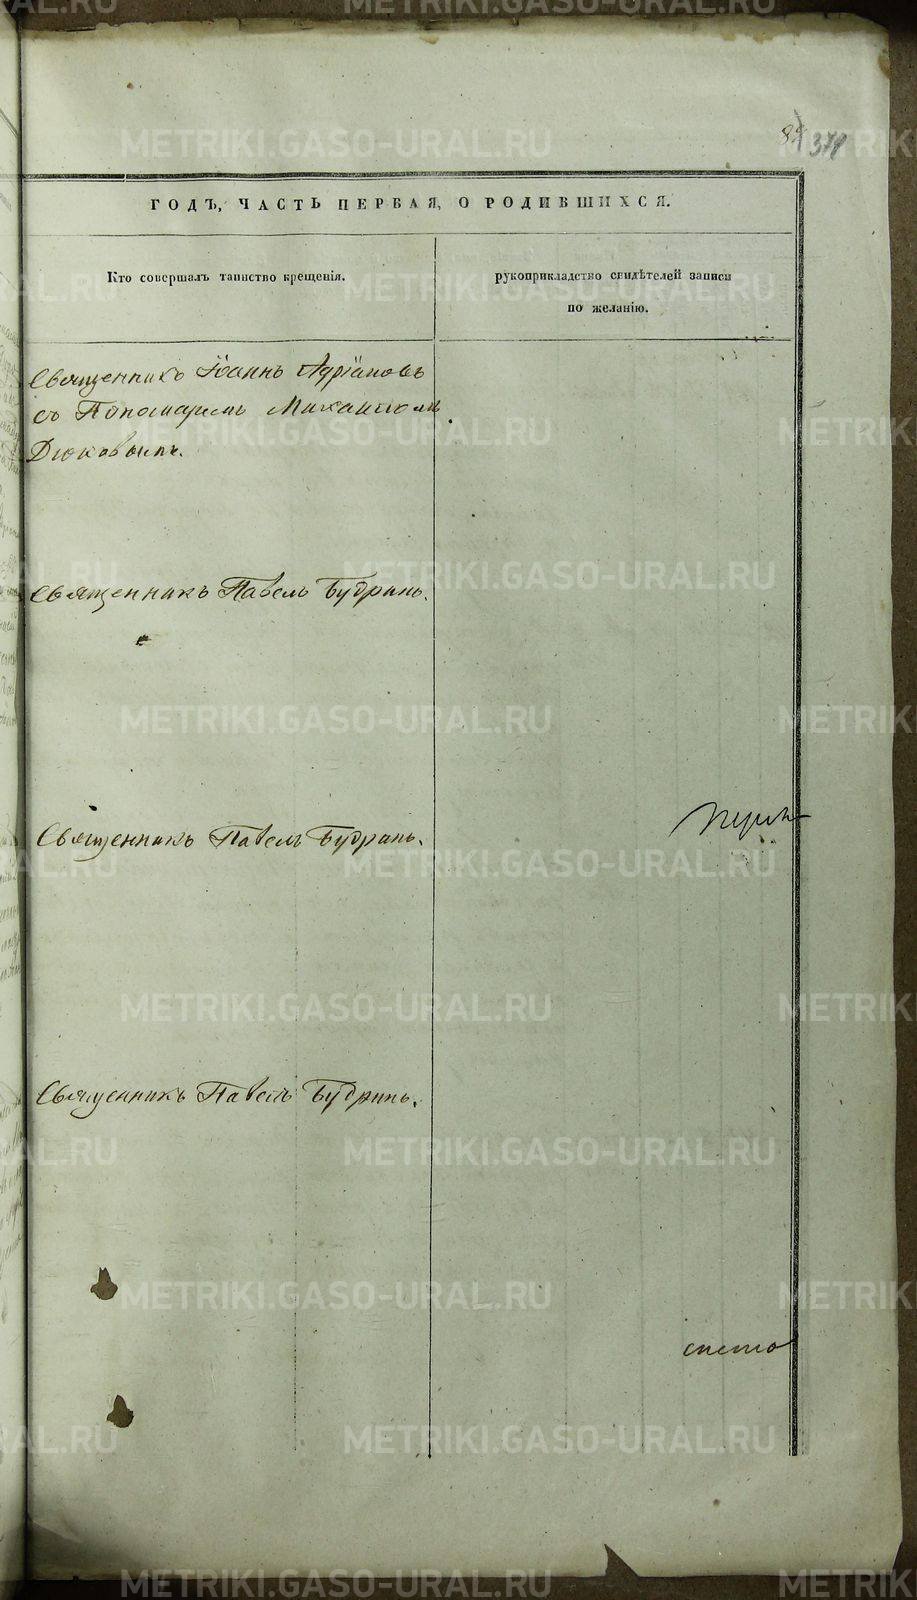 378
ГОДЪ, ЧАСТЬ ПЕРВАЯ, О РОДИВШИХСЯ.
Кто совершалъ таинство крещенія.
рукоприкладство свидѣтелей записи
по желанію.
Священникъ Іоаннъ Адріановъ
съ Пономаремъ Михаиломъ
Дюковымъ.
Священникъ Павелъ Будринъ.
Священникъ Павелъ Будринъ.
Священникъ Павелъ Будринъ.
METRIKI.GASO-URAL.RU